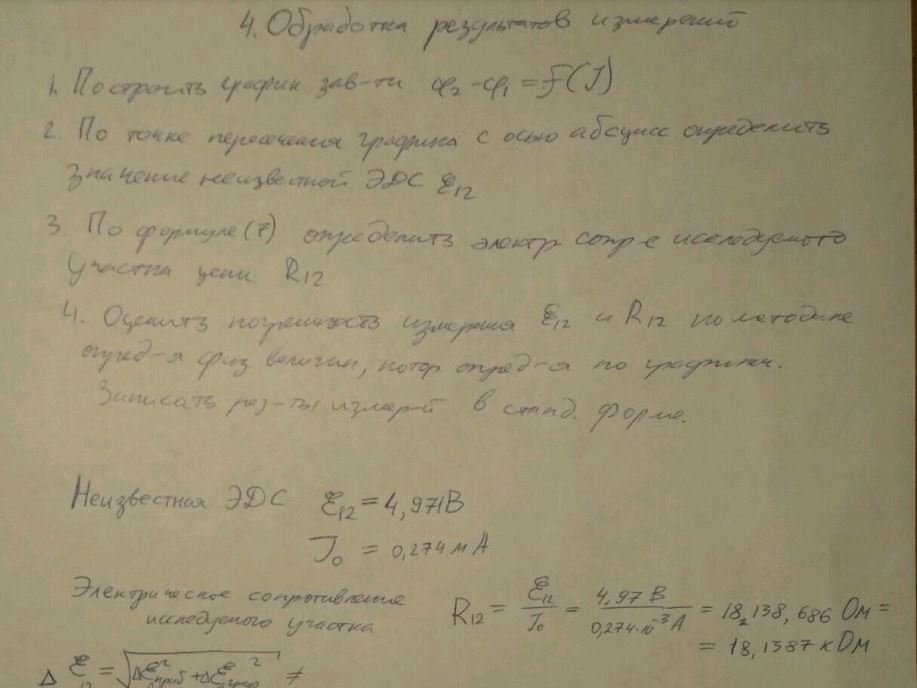 4. Обработка результатов измерений
1. Построить график зав-ти φ₂-φ₁ = f(J)
2. По точке пересечения графика с осью абсцисс определить
значение неизвестной ЭДС ℰ₁₂
3. По формуле (7) определить электр сопр-е исследуемого
участка цепи R₁₂
4. Оценить погрешность измерения ℰ₁₂ и R₁₂ по методике
опред-я физ величин, котор опред-я по графику.
Записать рез-ты измер-й в станд. форме.
Неизвестная ЭДС ℰ₁₂ = 4,971В
J₀ = 0,274 мА
Электрическое сопротивление
исследуемого участка
R₁₂ = ℰ₁₂/J₀ = 4,97 В/0,274·10⁻³А = 18,138,686 Ом =
= 18,1387 кОм
Δℰ₁₂ = √(Δℰ²приб + Δℰ²граф) ≠